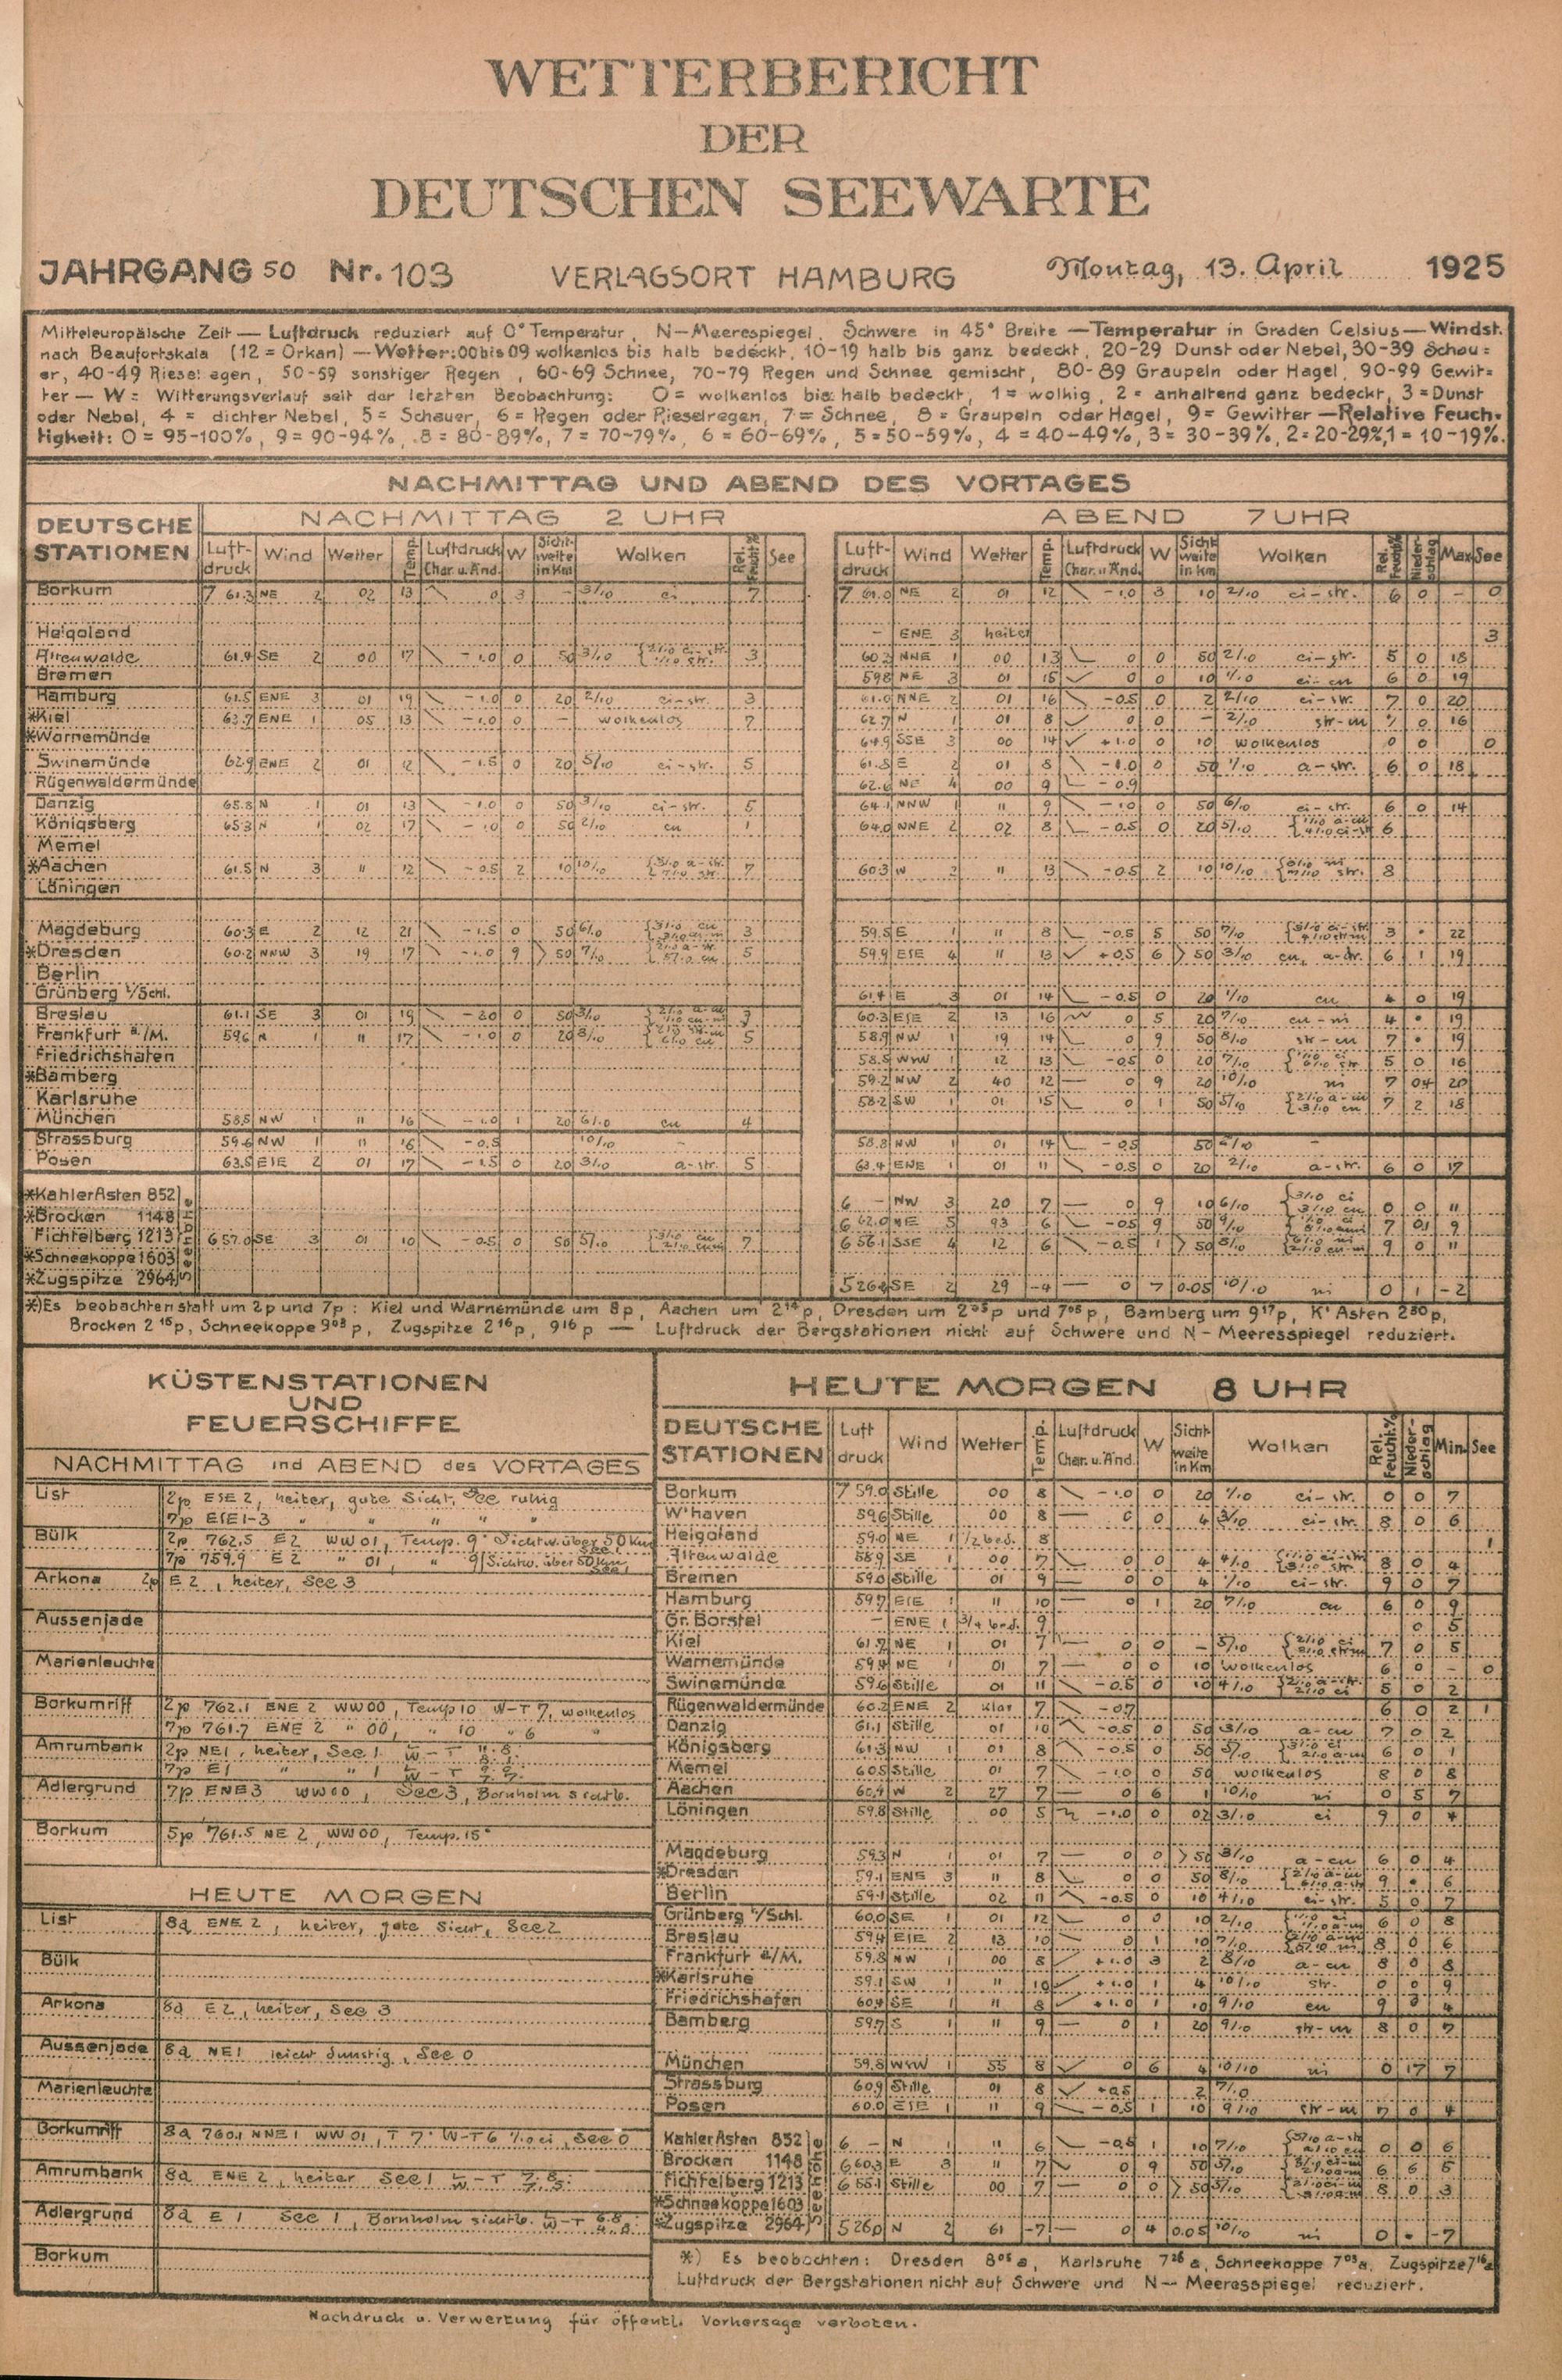 WETTERBERICHT
DER
DEUTSCHEN SEEWARTE
JAHRGANG 50 Nr. 103 VERLAGSORT HAMBURG Montag, 13. April 1925
Mitteleuropäische Zeit — Luftdruck reduziert auf 0° Temperatur, N—Meerespiegel, Schwere in 45° Breite — Temperatur in Graden Celsius — Windst.
nach Beaufortskala (12 = Orkan) — Wetter: 00 bis 09 wolkenlos bis halb bedeckt, 10-19 halb bis ganz bedeckt, 20-29 Dunst oder Nebel, 30-39 Schau=
er, 40-49 Rieselregen, 50-59 sonstiger Regen, 60-69 Schnee, 70-79 Regen und Schnee gemischt, 80-89 Graupeln oder Hagel, 90-99 Gewit=
ter — W = Witterungsverlauf seit der letzten Beobachtung: 0 = wolkenlos bis halb bedeckt, 1 = wolkig, 2 = anhaltend ganz bedeckt, 3 = Dunst
oder Nebel, 4 = dichter Nebel, 5 = Schauer, 6 = Regen oder Rieselregen, 7 = Schnee, 8 = Graupeln oder Hagel, 9 = Gewitter — Relative Feuch-
tigkeit: 0 = 95-100%, 9 = 90-94%, 8 = 80-89%, 7 = 70-79%, 6 = 60-69%, 5 = 50-59%, 4 = 40-49%, 3 = 30-39%, 2 = 20-29%, 1 = 10-19%.
NACHMITTAG UND ABEND DES VORTAGES
DEUTSCHE STATIONEN NACHMITTAG 2 UHR ABEND 7 UHR
Luftdruck Wind Wetter Temp. Luftdruck Char. u. Änd. W Sichtweite in Km Wolken Rel. Feucht.% See
Luftdruck Wind Wetter Temp. Luftdruck Char. u. Änd. W Sichtweite in Km Wolken Rel. Feucht.% Niederschlag Max See
Borkum 7 61.3 NE 2 02 13 0 3 – 3/10 ci 7 7 61.0 NE 2 01 12 -1.0 3 10 2/10 ci-str. 6 0 – 0
Helgoland – ENE 3 heiter 3
Altenwalde 61.4 SE 2 00 17 -1.0 0 50 3/10 3 60.2 NNE 1 00 13 0 0 50 2/10 ci-str. 5 0 18
Bremen 59.8 NE 3 01 15 0 0 10 1/10 ci-cu 6 0 19
Hamburg 61.5 ENE 3 01 19 -1.0 0 20 2/10 ci-str. 3 61.0 NNE 2 01 16 -0.5 0 2 2/10 ci-str. 7 0 20
*Kiel 63.7 ENE 1 05 13 -1.0 0 – wolkenlos 7 62.7 N 1 01 8 0 0 – 2/10 0 16
*Warnemünde 64.9 SSE 3 00 14 +1.0 0 10 wolkenlos 0 0 0
Swinemünde 62.9 ENE 2 01 12 -1.5 0 20 5/10 ci-str. 5 61.5 E 2 01 8 -1.0 0 50 1/10 a-str. 6 0 18
Rügenwaldermünde 62.6 NE 4 00 9 -0.9
Danzig 65.8 N 1 01 13 -1.0 0 50 3/10 ci-str. 5 64.1 NNW 1 " 9 -1.0 0 50 6/10 ci-str. 6 0 14
Königsberg 65.3 N 1 02 17 -1.0 0 50 2/10 cu 1 64.0 NNE 2 02 8 -0.5 0 20 5/10 6
Memel
*Aachen 61.5 N 3 " 12 -0.5 2 10 10/10 7 60.3 W 2 " 13 -0.5 2 10 10/10 8
Löningen
Magdeburg 60.3 E 2 12 21 -1.5 0 50 6/10 3 59.5 E 1 " 8 -0.5 5 50 7/10 3 • 22
*Dresden 60.2 NNW 3 19 17 -1.0 9 > 50 7/10 5 59.9 ESE 4 " 13 +0.5 6 > 50 3/10 cu, a-str. 6 1 19
Berlin
Grünberg i/Schl. 61.4 E 3 01 14 -0.5 0 20 1/10 cu 4 0 19
Breslau 61.1 SE 3 01 19 -2.0 0 50 3/10 3 60.3 ESE 2 13 16 0 5 20 7/10 cu-ni 4 • 19
Frankfurt a/M. 59.6 N 1 " 17 -1.0 0 20 8/10 5 58.9 NW 1 19 14 0 9 50 8/10 str-cu 7 • 19
Friedrichshafen 58.5 WNW 1 12 13 -0.5 0 20 7/10 5 0 16
*Bamberg 59.2 NW 2 40 12 — 0 9 20 10/10 ni 7 04 20
Karlsruhe 58.2 SW 1 01 15 0 1 50 5/10 7 2 18
München 58.5 NW 1 " 16 -1.0 1 20 6/10 cu 4
Strassburg 59.6 NW 1 " 16 -0.5 10/10 – 58.8 NW 1 01 14 -0.5 50 –
Posen 63.5 ESE 2 01 17 -1.5 0 20 3/10 a-str. 5 63.4 ENE 1 01 11 -0.5 0 20 2/10 a-str. 6 0 17
Seehöhe
*Kahler Asten 852 6 – NW 3 20 7 — 0 9 10 6/10 0 0 11
*Brocken 1148 6 62.0 NE 5 93 6 -0.5 9 50 9/10 7 01 9
Fichtelberg 1213 6 57.0 SE 3 01 10 -0.5 0 50 5/10 7 6 56.1 SSE 4 12 6 -0.5 1 > 50 8/10 9 0 11
*Schneekoppe 1603
*Zugspitze 2964 5 26.4 SE 2 29 -4 — 0 7 0.05 10/10 ni 0 1 -2
*) Es beobachten statt um 2p und 7p: Kiel und Warnemünde um 8p, Aachen um 2¹⁴p, Dresden um 2⁰⁵p und 7⁰⁵p, Bamberg um 9¹⁷p, K' Asten 2³⁰p,
Brocken 2¹⁵p, Schneekoppe 9⁰³p, Zugspitze 2¹⁶p, 9¹⁶p — Luftdruck der Bergstationen nicht auf Schwere und N-Meeresspiegel reduziert.
KÜSTENSTATIONEN
UND
FEUERSCHIFFE
NACHMITTAG und ABEND des VORTAGES
List 2p ESE 2, heiter, gute Sicht, See ruhig
7p ESE 1-3 " " " " "
Bülk 2p 762.5 E2 WW 01, Temp. 9° Sichtw. über 50 Km
7p 759.9 E2 " 01, " 9 Sichtw. über 50 Km See 1
Arkona 2p E 2, heiter, See 3
Aussenjade
Marienleuchte
Borkumriff 2p 762.1 ENE 2 WW 00, Temp 10 W-T 7, wolkenlos
7p 761.7 ENE 2 " 00, " 10 " 6 "
Amrumbank 2p NE1, heiter, See 1
7p E1 " " 1
Adlergrund 7p ENE 3 WW 00, See 3, Bornholm sichtb.
Borkum 5p 761.5 NE 2, WW 00, Temp. 15°
HEUTE MORGEN
List 8a ENE 2, heiter, gute Sicht, See 2
Bülk
Arkona 8a E 2, heiter, See 3
Aussenjade 8a NE1 leicht dunstig, See 0
Marienleuchte
Borkumriff 8a 760.1 NNE 1 WW 01, T 7° W-T 6 1/10 ci, See 0
Amrumbank 8a ENE 2, heiter See 1
Adlergrund 8a E 1 See 1, Bornholm sichtb.
Borkum
HEUTE MORGEN 8 UHR
DEUTSCHE STATIONEN Luftdruck Wind Wetter Temp. Luftdruck Char. u. Änd. W Sichtweite in Km Wolken Rel. Feucht.% Niederschlag Min. See
Borkum 7 59.0 Stille 00 8 -1.0 0 20 1/10 ci-str. 0 0 7
W'haven 59.6 Stille 00 8 — 0 0 4 3/10 ci-str. 8 0 6
Helgoland 59.0 NE 1 1/2 bed. 8 1
Altenwalde 58.9 SE 1 00 7 0 0 4 4/10 8 0 4
Bremen 59.0 Stille 01 9 — 0 0 4 1/10 ci-str. 9 0 7
Hamburg 59.7 ESE 1 " 10 — 0 1 20 7/10 cu 6 0 9
Gr. Borstel – ENE 1 3/4 bed. 9 0 5
Kiel 61.7 NE 1 01 7 0 0 – 5/10 7 0 5
Warnemünde 59.4 NE 1 01 7 — 0 0 10 wolkenlos 6 0 – 0
Swinemünde 59.6 Stille 01 11 -0.5 0 10 4/10 5 0 2
Rügenwaldermünde 60.2 ENE 2 klar 7 -0.7 6 0 2 1
Danzig 61.1 Stille 01 10 -0.5 0 50 3/10 a-cu 7 0 2
Königsberg 61.3 NW 1 01 8 -0.5 0 50 5/10 6 0 1
Memel 60.5 Stille 01 7 -1.0 0 50 wolkenlos 8 0 8
Aachen 60.4 W 2 27 7 — 0 6 1 10/10 ni 0 5 7
Löningen 59.8 Stille 00 5 -1.0 0 02 3/10 ci 9 0 4
Magdeburg 59.3 N 1 01 7 — 0 0 > 50 3/10 a-cu 6 0 4
*Dresden 59.1 ENE 3 " 8 0 0 50 8/10 9 • 6
Berlin 59.1 Stille 02 11 -0.5 0 10 4/10 ci-str. 5 0 7
Grünberg i/Schl. 60.0 SE 1 01 12 0 0 10 2/10 6 0 8
Breslau 59.4 ESE 2 13 10 0 1 10 7/10 8 0 6
Frankfurt a/M. 59.8 NW 1 00 8 +1.0 3 2 8/10 a-cu 8 0 8
*Karlsruhe 59.1 SW 1 " 10 +1.0 1 4 10/10 str. 0 0 9
Friedrichshafen 60.4 SE 1 " 8 +1.0 1 10 9/10 cu 9 0 4
Bamberg 59.7 S 1 " 9 — 0 1 20 9/10 8 0 7
München 59.8 WSW 1 55 8 0 6 4 10/10 ni 0 17 7
Strassburg 60.9 Stille 01 8 +0.5 2 7/10
Posen 60.0 ESE 1 " 9 -0.5 1 10 9/10 7 0 4
Seehöhe
Kahler Asten 852 6 – N 1 " 6 -0.5 1 10 7/10 0 0 6
Brocken 1148 6 60.3 E 3 " 7 0 9 50 5/10 6 6 5
Fichtelberg 1213 6 55.1 Stille 00 7 — 0 0 > 50 5/10 8 0 3
*Schneekoppe 1603
*Zugspitze 2964 5 26.0 N 2 61 -7 — 0 4 0.05 10/10 ni 0 • -7
*) Es beobachten: Dresden 8⁰⁵a, Karlsruhe 7²⁶a, Schneekoppe 7⁰³a, Zugspitze 7¹⁶a
Luftdruck der Bergstationen nicht auf Schwere und N-Meeresspiegel reduziert.
Nachdruck u. Verwertung für öffentl. Vorhersage verboten.